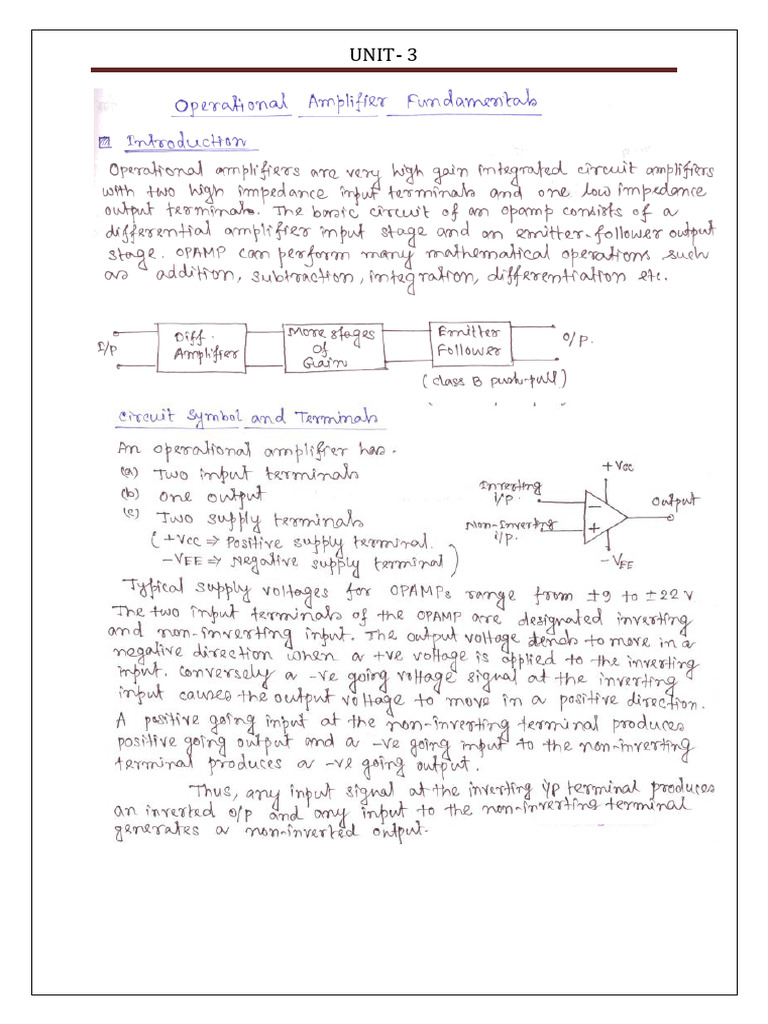 UNIT- 3
Operational Amplifier Fundamentals
Introduction
Operational amplifiers are very high gain integrated circuit amplifiers
with two high impedance input terminals and one low impedance
output terminals. The basic circuit of an opamp consists of a
differential amplifier input stage and an emitter-follower output
stage. OPAMP can perform many mathematical operations such
as addition, subtraction, integration, differentiation etc.
I/p
Diff.
Amplifier
More stages
of
Gain
Emitter
Follower
O/p.
(class B push-pull)
Circuit Symbol and Terminals
An operational amplifier has.
(a) Two input terminals
(b) one output
(c) Two supply terminals
(+Vcc ⇒ Positive supply terminal.
-VEE ⇒ Negative supply terminal)
+Vcc
Inverting
i/p.
Non-Inverting
i/p.
−
+
Output
-VEE
Typical supply voltages for OPAMPs range from ±9 to ±22 V
The two input terminals of the OPAMP are designated inverting
and non-inverting input. The output voltage tends to move in a
negative direction when a +ve voltage is applied to the inverting
input. Conversely a -ve going voltage signal at the inverting
input causes the output voltage to move in a positive direction.
A positive going input at the non-inverting terminal produces
positive going output and a -ve going input to the non-inverting
terminal produces a -ve going output.
Thus, any input signal at the inverting i/p terminal produces
an inverted o/p and any input to the non-inverting terminal
generates a non-inverted output.